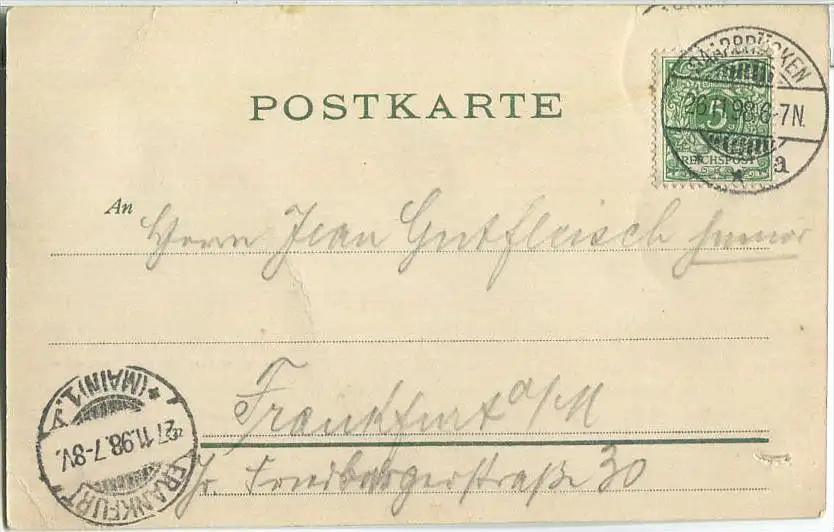 POSTKARTE
SAARBRÜCKEN
26.11.98.6-7N.
* a
5
REICHSPOST
An Herrn Jean Gutfleisch junior
Frankfurt a/M
Gr. Friedbergerstraße 30
FRANKFURT
* (MAIN) 1.
27.11.98.7-8V.